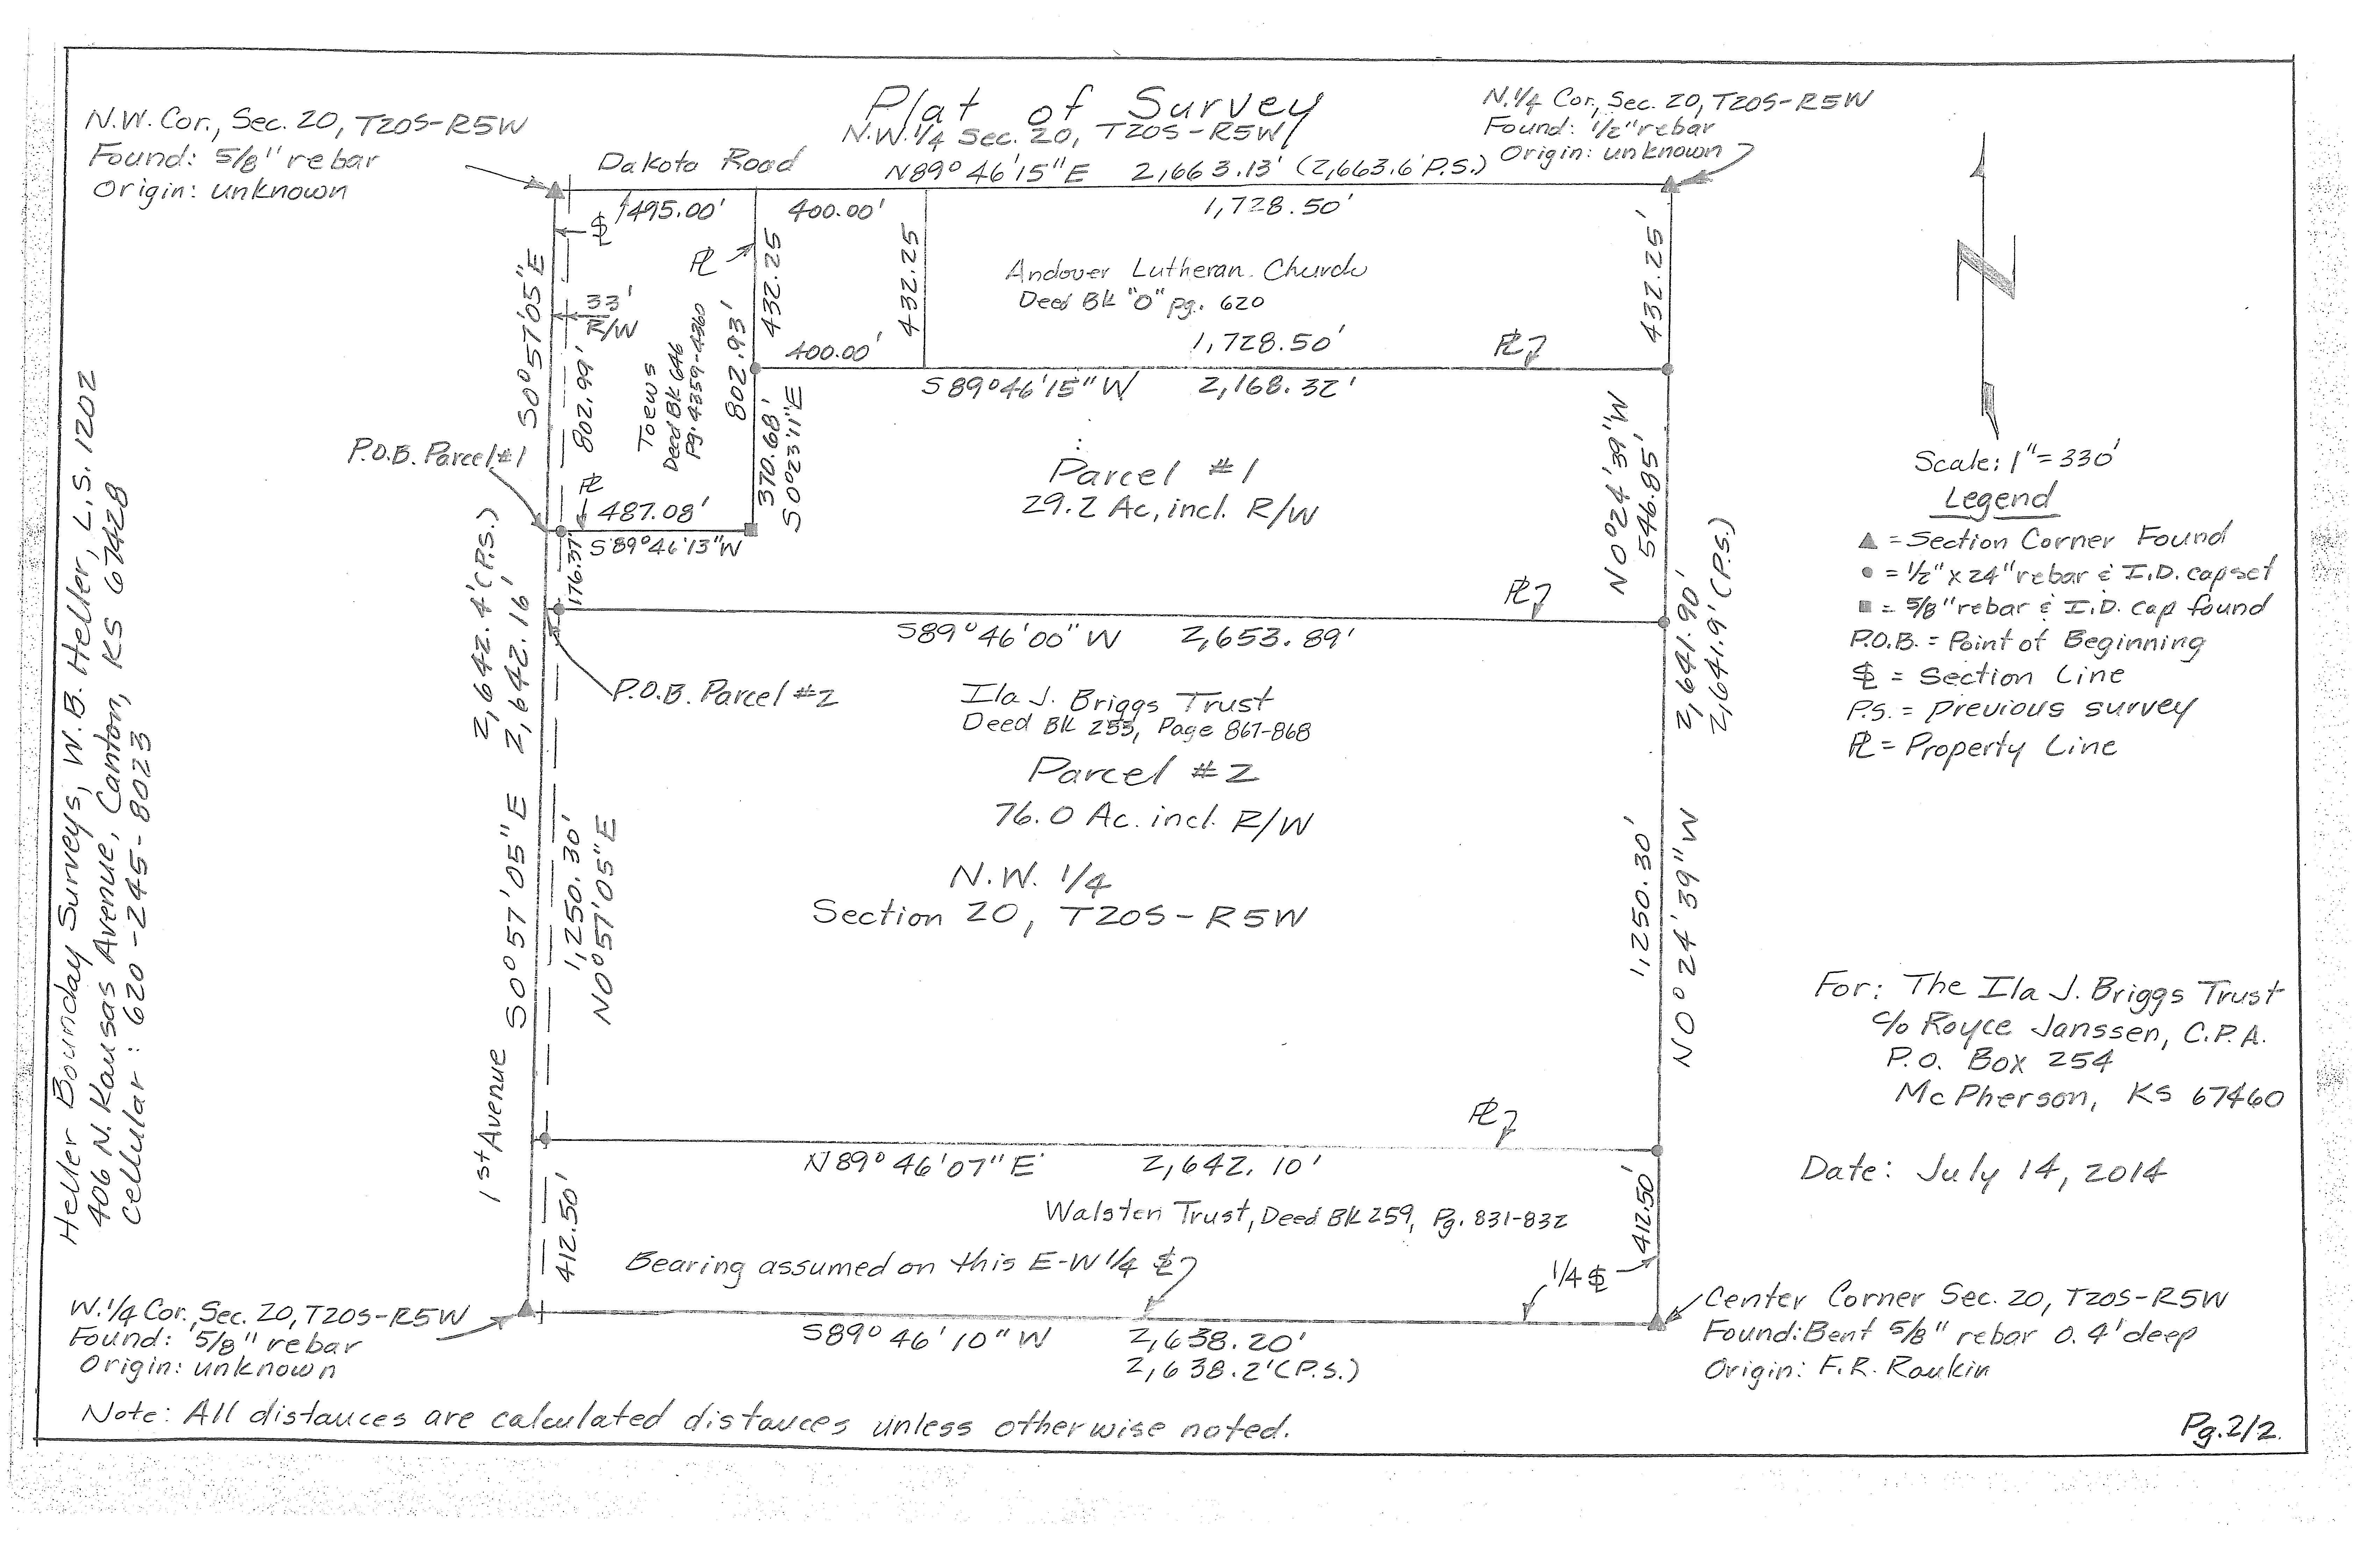 Plat of Survey
N.W.1/4 Sec. 20, T20S-R5W
N.W. Cor., Sec. 20, T20S-R5W
Found: 5/8" rebar
Origin: unknown
N.1/4 Cor., Sec. 20, T20S-R5W
Found: 1/2" rebar
Origin: unknown
Dakota Road
N89°46'15"E 2,663.13' (2,663.6' P.S.)
495.00'
400.00'
1,728.50'
33'
R/W
S0°57'05"E
802.99'
Toews
Deed Bk 646
Pg. 4359-4360
802.93'
432.25
432.25
Andover Lutheran Church
Deed Bk "O" pg. 620
432.25'
400.00'
1,728.50'
S89°46'15"W 2,168.32'
P.O.B. Parcel #1
487.08'
S89°46'13"W
370.68'
S0°23'11"E
Parcel #1
29.2 Ac, incl. R/W
N0°24'39"W
546.85'
176.37'
S89°46'00"W 2,653.89'
P.O.B. Parcel #2
2,642.4' (P.S.)
2,642.16'
2,641.90'
2,641.9' (P.S.)
Ila J. Briggs Trust
Deed Bk 255, Page 867-868
Parcel #2
76.0 Ac. incl. R/W
N.W. 1/4
Section 20, T20S-R5W
1st Avenue S0°57'05"E
1,250.30'
N0°57'05"E
1,250.30'
N0°24'39"W
N89°46'07"E 2,642.10'
412.50'
412.50'
Walsten Trust, Deed Bk 259, Pg. 831-832
Bearing assumed on this E-W 1/4 SL
1/4 SL
S89°46'10"W 2,638.20'
2,638.2' (P.S.)
W.1/4 Cor., Sec. 20, T20S-R5W
Found: 5/8" rebar
Origin: unknown
Center Corner Sec. 20, T20S-R5W
Found: Bent 5/8" rebar 0.4' deep
Origin: F.R. Rankin
Note: All distances are calculated distances unless otherwise noted.
Pg. 2/2
N
Scale: 1" = 330'
Legend
▲ = Section Corner Found
● = 1/2" x 24" rebar & I.D. cap set
■ = 5/8" rebar & I.D. cap found
P.O.B. = Point of Beginning
SL = Section Line
P.S. = previous survey
PL = Property Line
For: The Ila J. Briggs Trust
c/o Royce Janssen, C.P.A.
P.O. Box 254
McPherson, KS 67460
Date: July 14, 2014
Heller Bounday Surveys, W.B. Heller, L.S. 1202
406 N. Kansas Avenue, Canton, KS 67428
Cellular: 620-245-8023